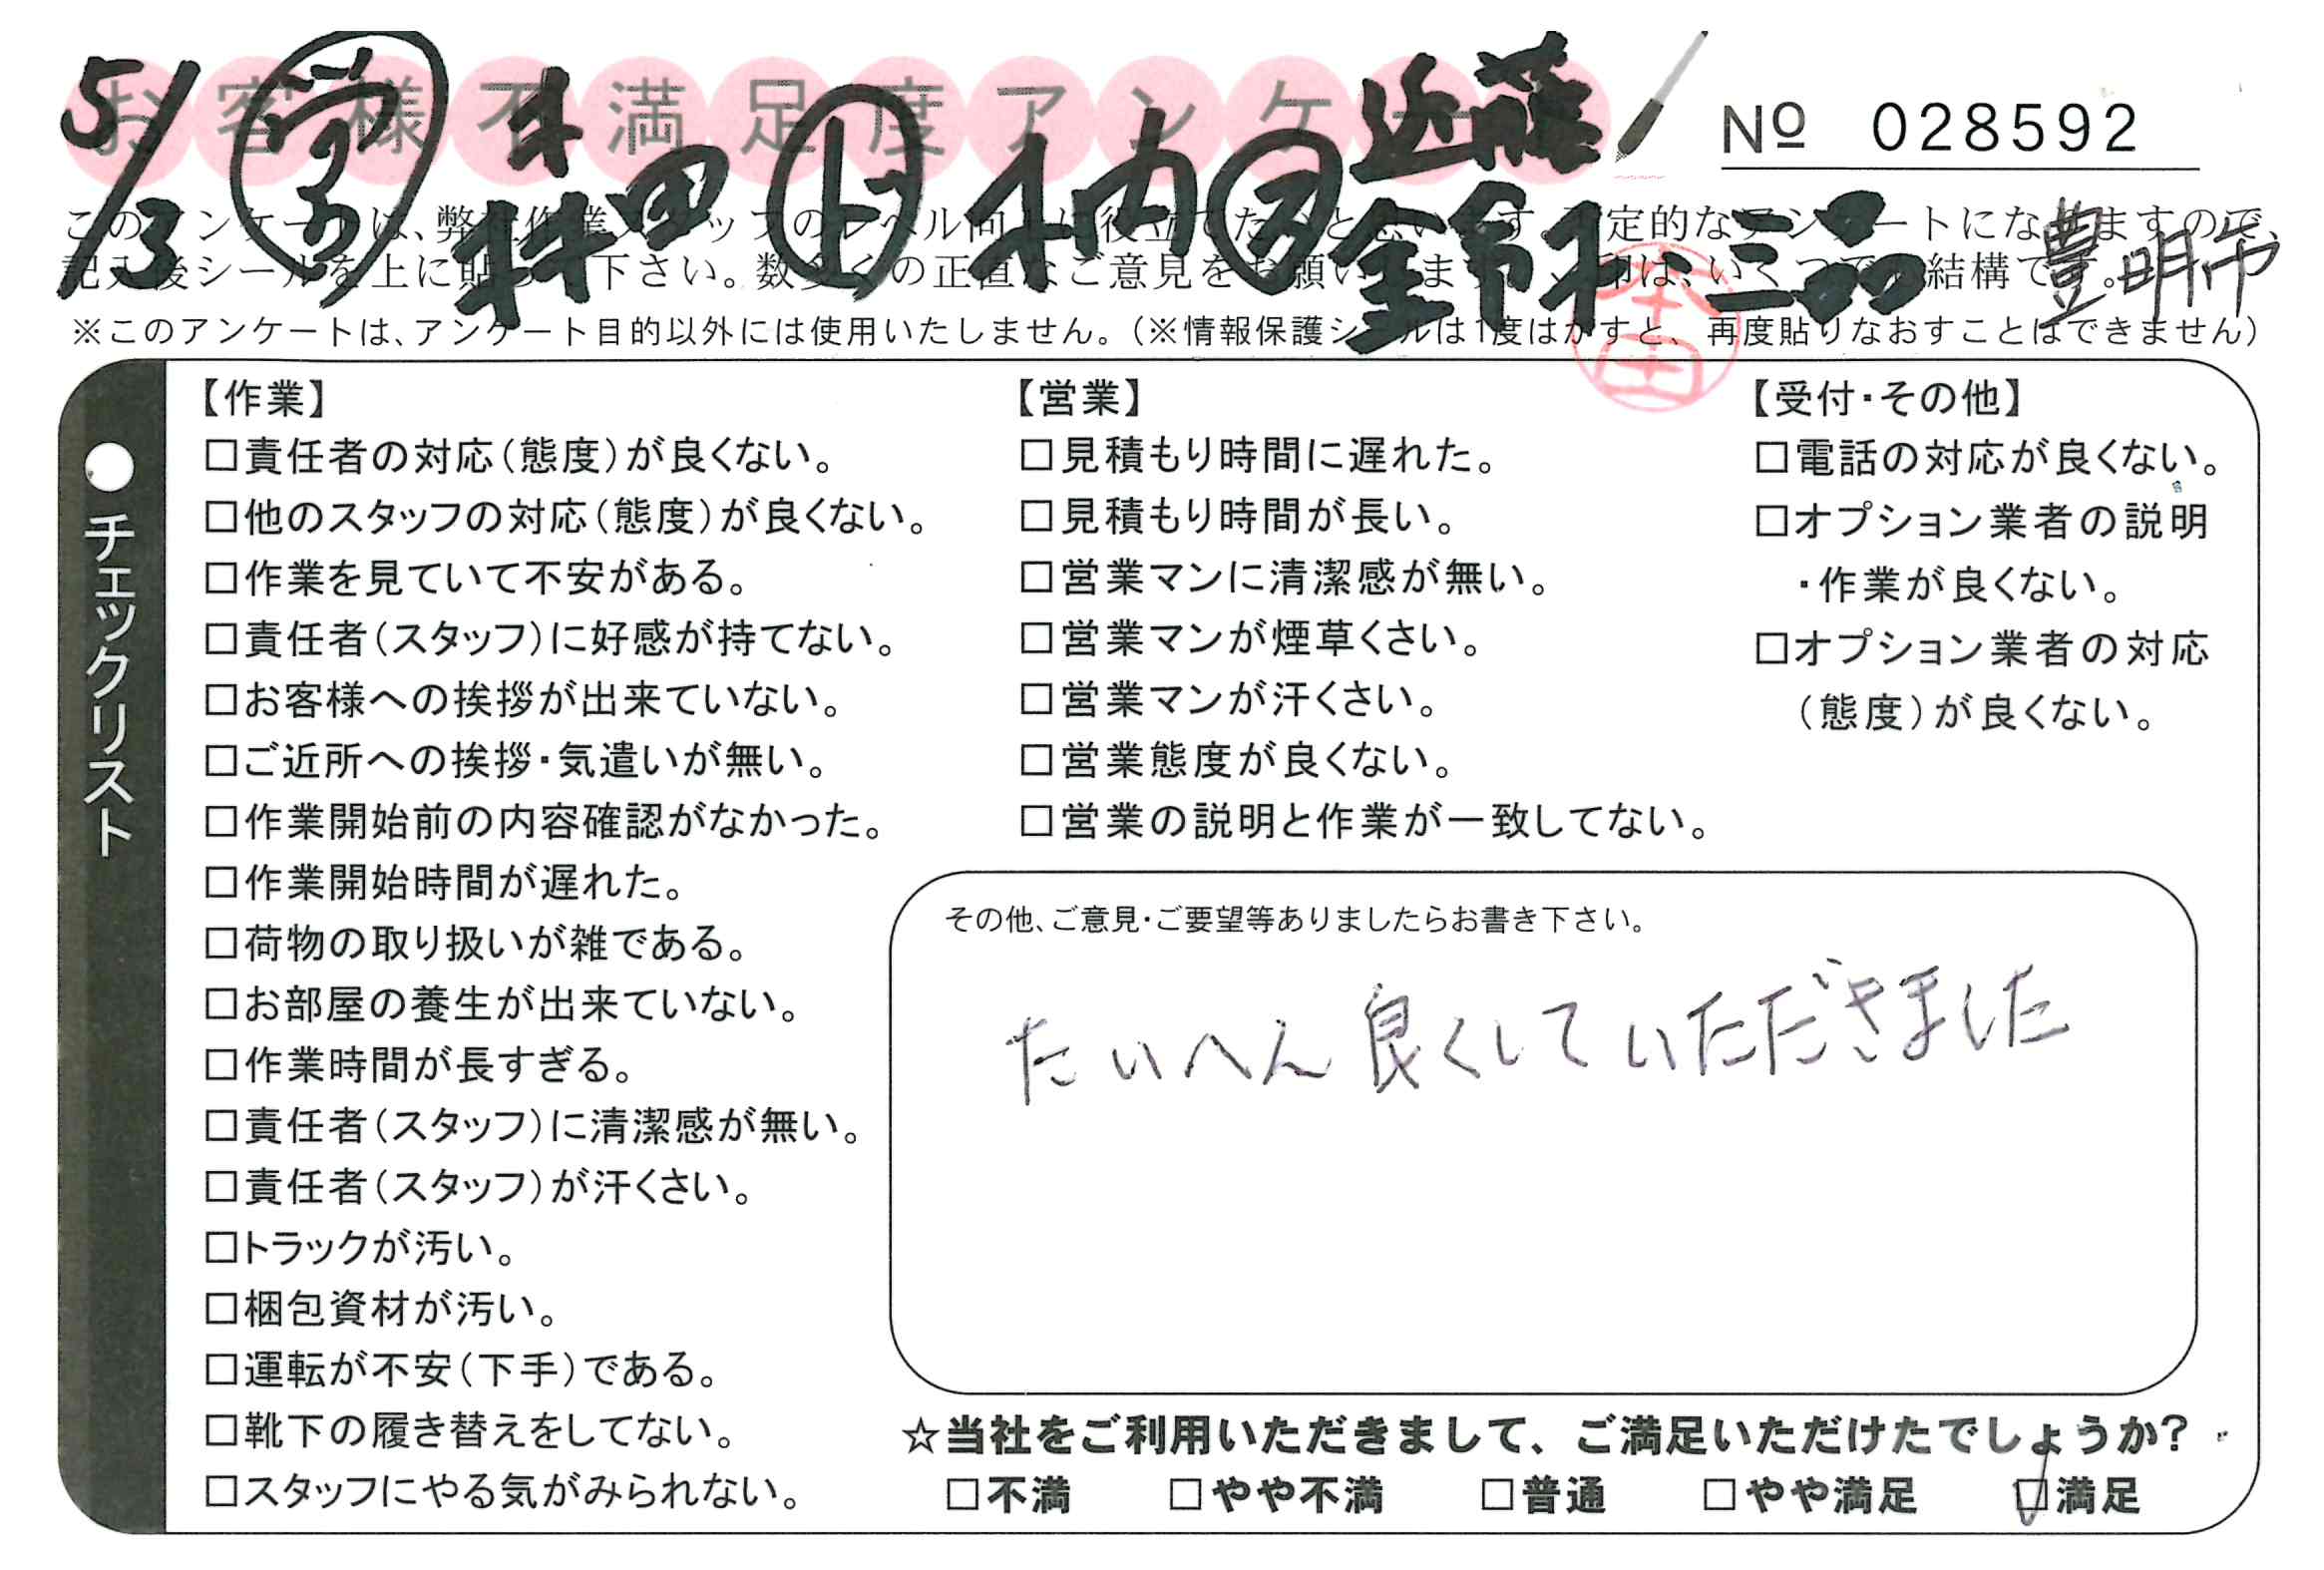 お客様不満足度アンケート
№ 028592
5/3
近藤
豊明市
このアンケートは、弊社作業スタッフのレベル向上に役立てたいと思います。定的なアンケートになりますので、
記入後シールを上に貼って下さい。数多くの正直なご意見をお願いします。印は、いくつでも結構です。
※このアンケートは、アンケート目的以外には使用いたしません。(※情報保護シールは1度はがすと、再度貼りなおすことはできません)
本田
●チェックリスト
【作業】
□責任者の対応(態度)が良くない。
□他のスタッフの対応(態度)が良くない。
□作業を見ていて不安がある。
□責任者(スタッフ)に好感が持てない。
□お客様への挨拶が出来ていない。
□ご近所への挨拶・気遣いが無い。
□作業開始前の内容確認がなかった。
□作業開始時間が遅れた。
□荷物の取り扱いが雑である。
□お部屋の養生が出来ていない。
□作業時間が長すぎる。
□責任者(スタッフ)に清潔感が無い。
□責任者(スタッフ)が汗くさい。
□トラックが汚い。
□梱包資材が汚い。
□運転が不安(下手)である。
□靴下の履き替えをしてない。
□スタッフにやる気がみられない。
【営業】
□見積もり時間に遅れた。
□見積もり時間が長い。
□営業マンに清潔感が無い。
□営業マンが煙草くさい。
□営業マンが汗くさい。
□営業態度が良くない。
□営業の説明と作業が一致してない。
【受付・その他】
□電話の対応が良くない。
□オプション業者の説明
・作業が良くない。
□オプション業者の対応
(態度)が良くない。
その他、ご意見・ご要望等ありましたらお書き下さい。
たいへん良くしていただきました
☆当社をご利用いただきまして、ご満足いただけたでしょうか?
□不満 □やや不満 □普通 □やや満足 ☑満足